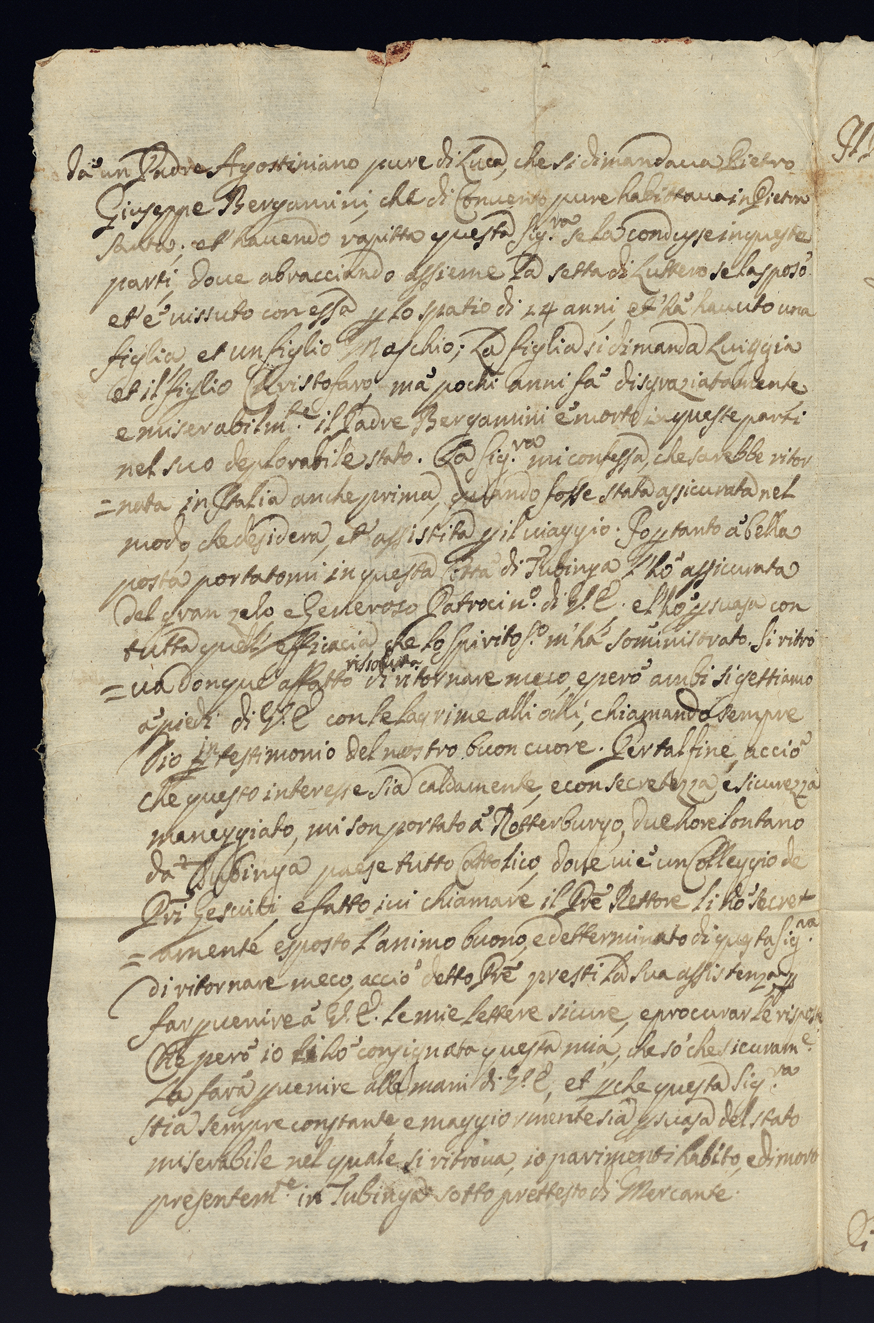 da un Padre Agostiniano pure di Luca, che si dimandaua Pietro
Giuseppe Bergamini, che di Conuento pure habittaua in Pietra
Santa. et hauendo rapitta questa Sig.ra se la condusse in queste
parti, doue abracciando assieme La setta di Luttero se la sposò
et è uissuto con essa p lo spatio di 14 anni, et hà hauuto una
figlia et un figlio Maschio; La figlia si dimanda Luiggia
et il figlio Christofaro, mà pochi anni fà disgraziatamente
e miserabilm.te il Padre Bergamini è morto in queste parti
nel suo deplorabile stato. La Sig.ra mi confessa, che sarebbe ritor
=nata in Italia anche prima, quando fosse stata assicurata nel
modo che desidera, et assistita p il uiaggio. Io p tanto à bella
posta portatomi in questa Città di Tubinga l'hò assicurata
del gran zelo e Generoso Patrocin.o di V.E. e l'hò psuasa con
tutta quel' efficacia che lo Spirito S.o m'hà somministrato. Si ritro
=ua donque affatto risoluta di ritornare meco, e però ambi si gettiamo
à piedi di V.E. con le lagrime alli occhi, chiamando sempre
Dio in testimonio del nostro buon cuore. Per tal fine, acciò
che questo interesse sia caldamente, e con secretezza e sicurezza
maneggiato, mi son portato à Rotterburgo, due hore lontano
da Tubinga paese tutto Cattolico, doue ui è un Colleggio de
Pri Gesuiti, e fatto iui chiamare il Pre Rettore li hò secret
=amente esposto l'animo buono, e detterminato di questa Sig.ra
di ritornare meco, acciò detto Pre presti La sua assistenza p
far puenire à V.E. le mie lettere sicure, e procurar le risposte
Che però io li hò consignata questa mia, che sò che sicuram.e
La farà puenire alle mani di V.E, et p che questa Sig.ra
stia sempre constante e maggiormente sia psuasa del stato
miserabile nel quale si ritroua, io parimenti habito, e dimoro
presentem.te in Tubinga sotto prettesto di Mercante.